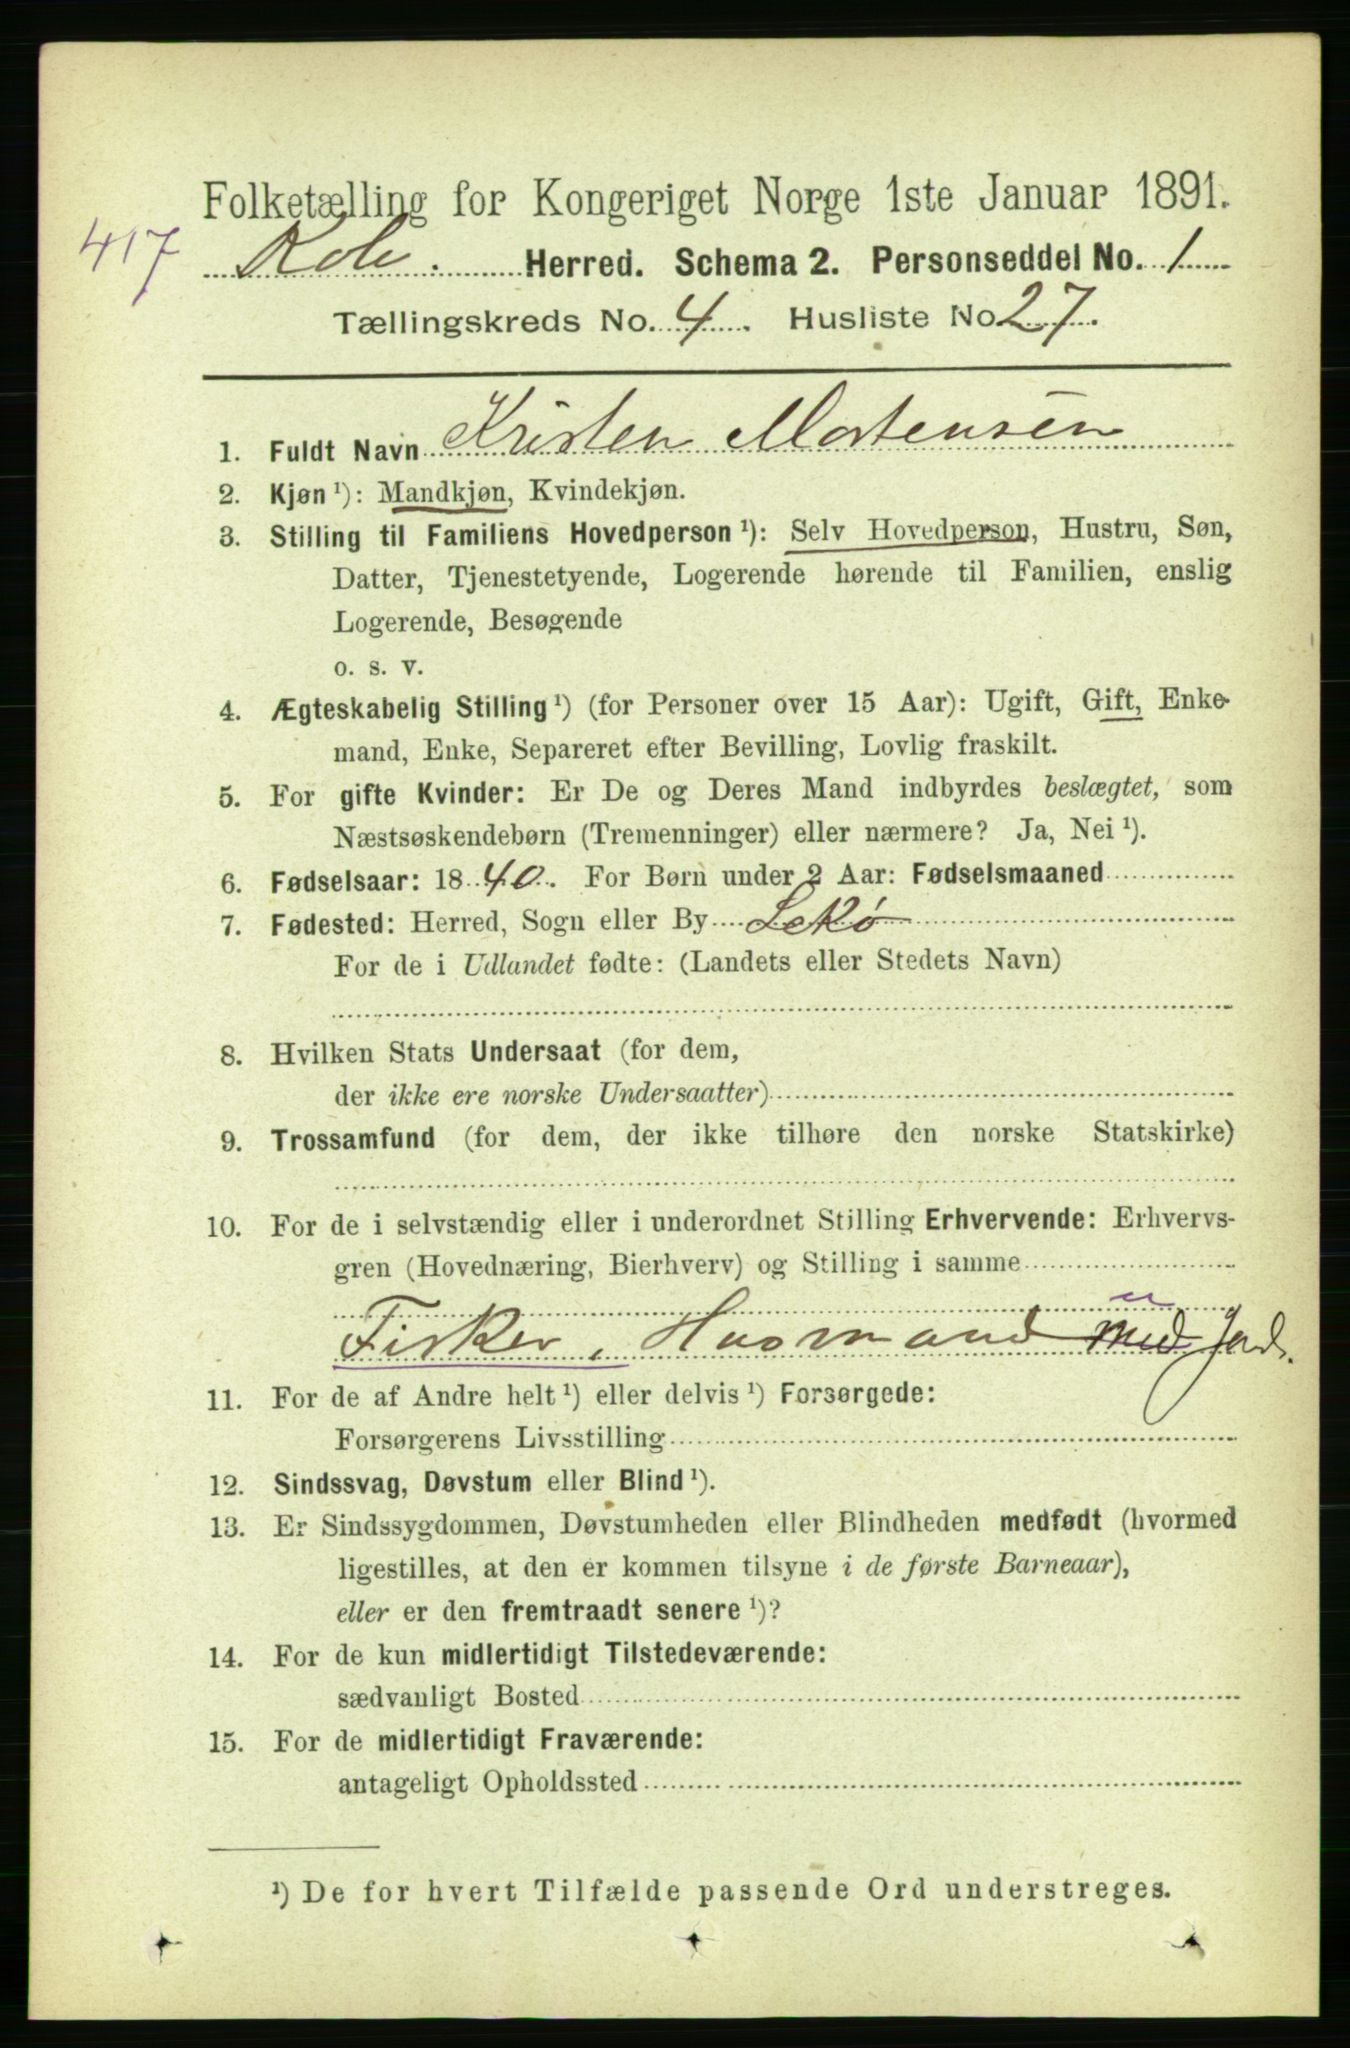 Folketælling for Kongeriget Norge 1ste Januar 1891.
417
Herred. Schema 2. Personseddel No. 1
Tællingskreds No. 4. Husliste No 27.
1. Fuldt Navn Kristen Mortensen
2. Kjøn ¹): Mandkjøn, Kvindekjøn.
3. Stilling til Familiens Hovedperson ¹): Selv Hovedperson, Hustru, Søn,
Datter, Tjenestetyende, Logerende hørende til Familien, enslig
Logerende, Besøgende
o. s. v.
4. Ægteskabelig Stilling ¹) (for Personer over 15 Aar): Ugift, Gift, Enke-
mand, Enke, Separeret efter Bevilling, Lovlig fraskilt.
5. For gifte Kvinder: Er De og Deres Mand indbyrdes beslægtet, som
Næstsøskendebørn (Tremenninger) eller nærmere? Ja, Nei ¹).
6. Fødselsaar: 1840. For Børn under 2 Aar: Fødselsmaaned
7. Fødested: Herred, Sogn eller By Lekø
For de i Udlandet fødte: (Landets eller Stedets Navn)
8. Hvilken Stats Undersaat (for dem,
der ikke ere norske Undersaatter)
9. Trossamfund (for dem, der ikke tilhøre den norske Statskirke)
10. For de i selvstændig eller i underordnet Stilling Erhvervende: Erhvervs-
gren (Hovednæring, Bierhverv) og Stilling i samme
Fisker, Husmand med Jord.
11. For de af Andre helt ¹) eller delvis ¹) Forsørgede:
Forsørgerens Livsstilling
12. Sindssvag, Døvstum eller Blind ¹).
13. Er Sindssygdommen, Døvstumheden eller Blindheden medfødt (hvormed
ligestilles, at den er kommen tilsyne i de første Barneaar),
eller er den fremtraadt senere ¹)?
14. For de kun midlertidigt Tilstedeværende:
sædvanligt Bosted
15. For de midlertidigt Fraværende:
antageligt Opholdssted
¹) De for hvert Tilfælde passende Ord understreges.